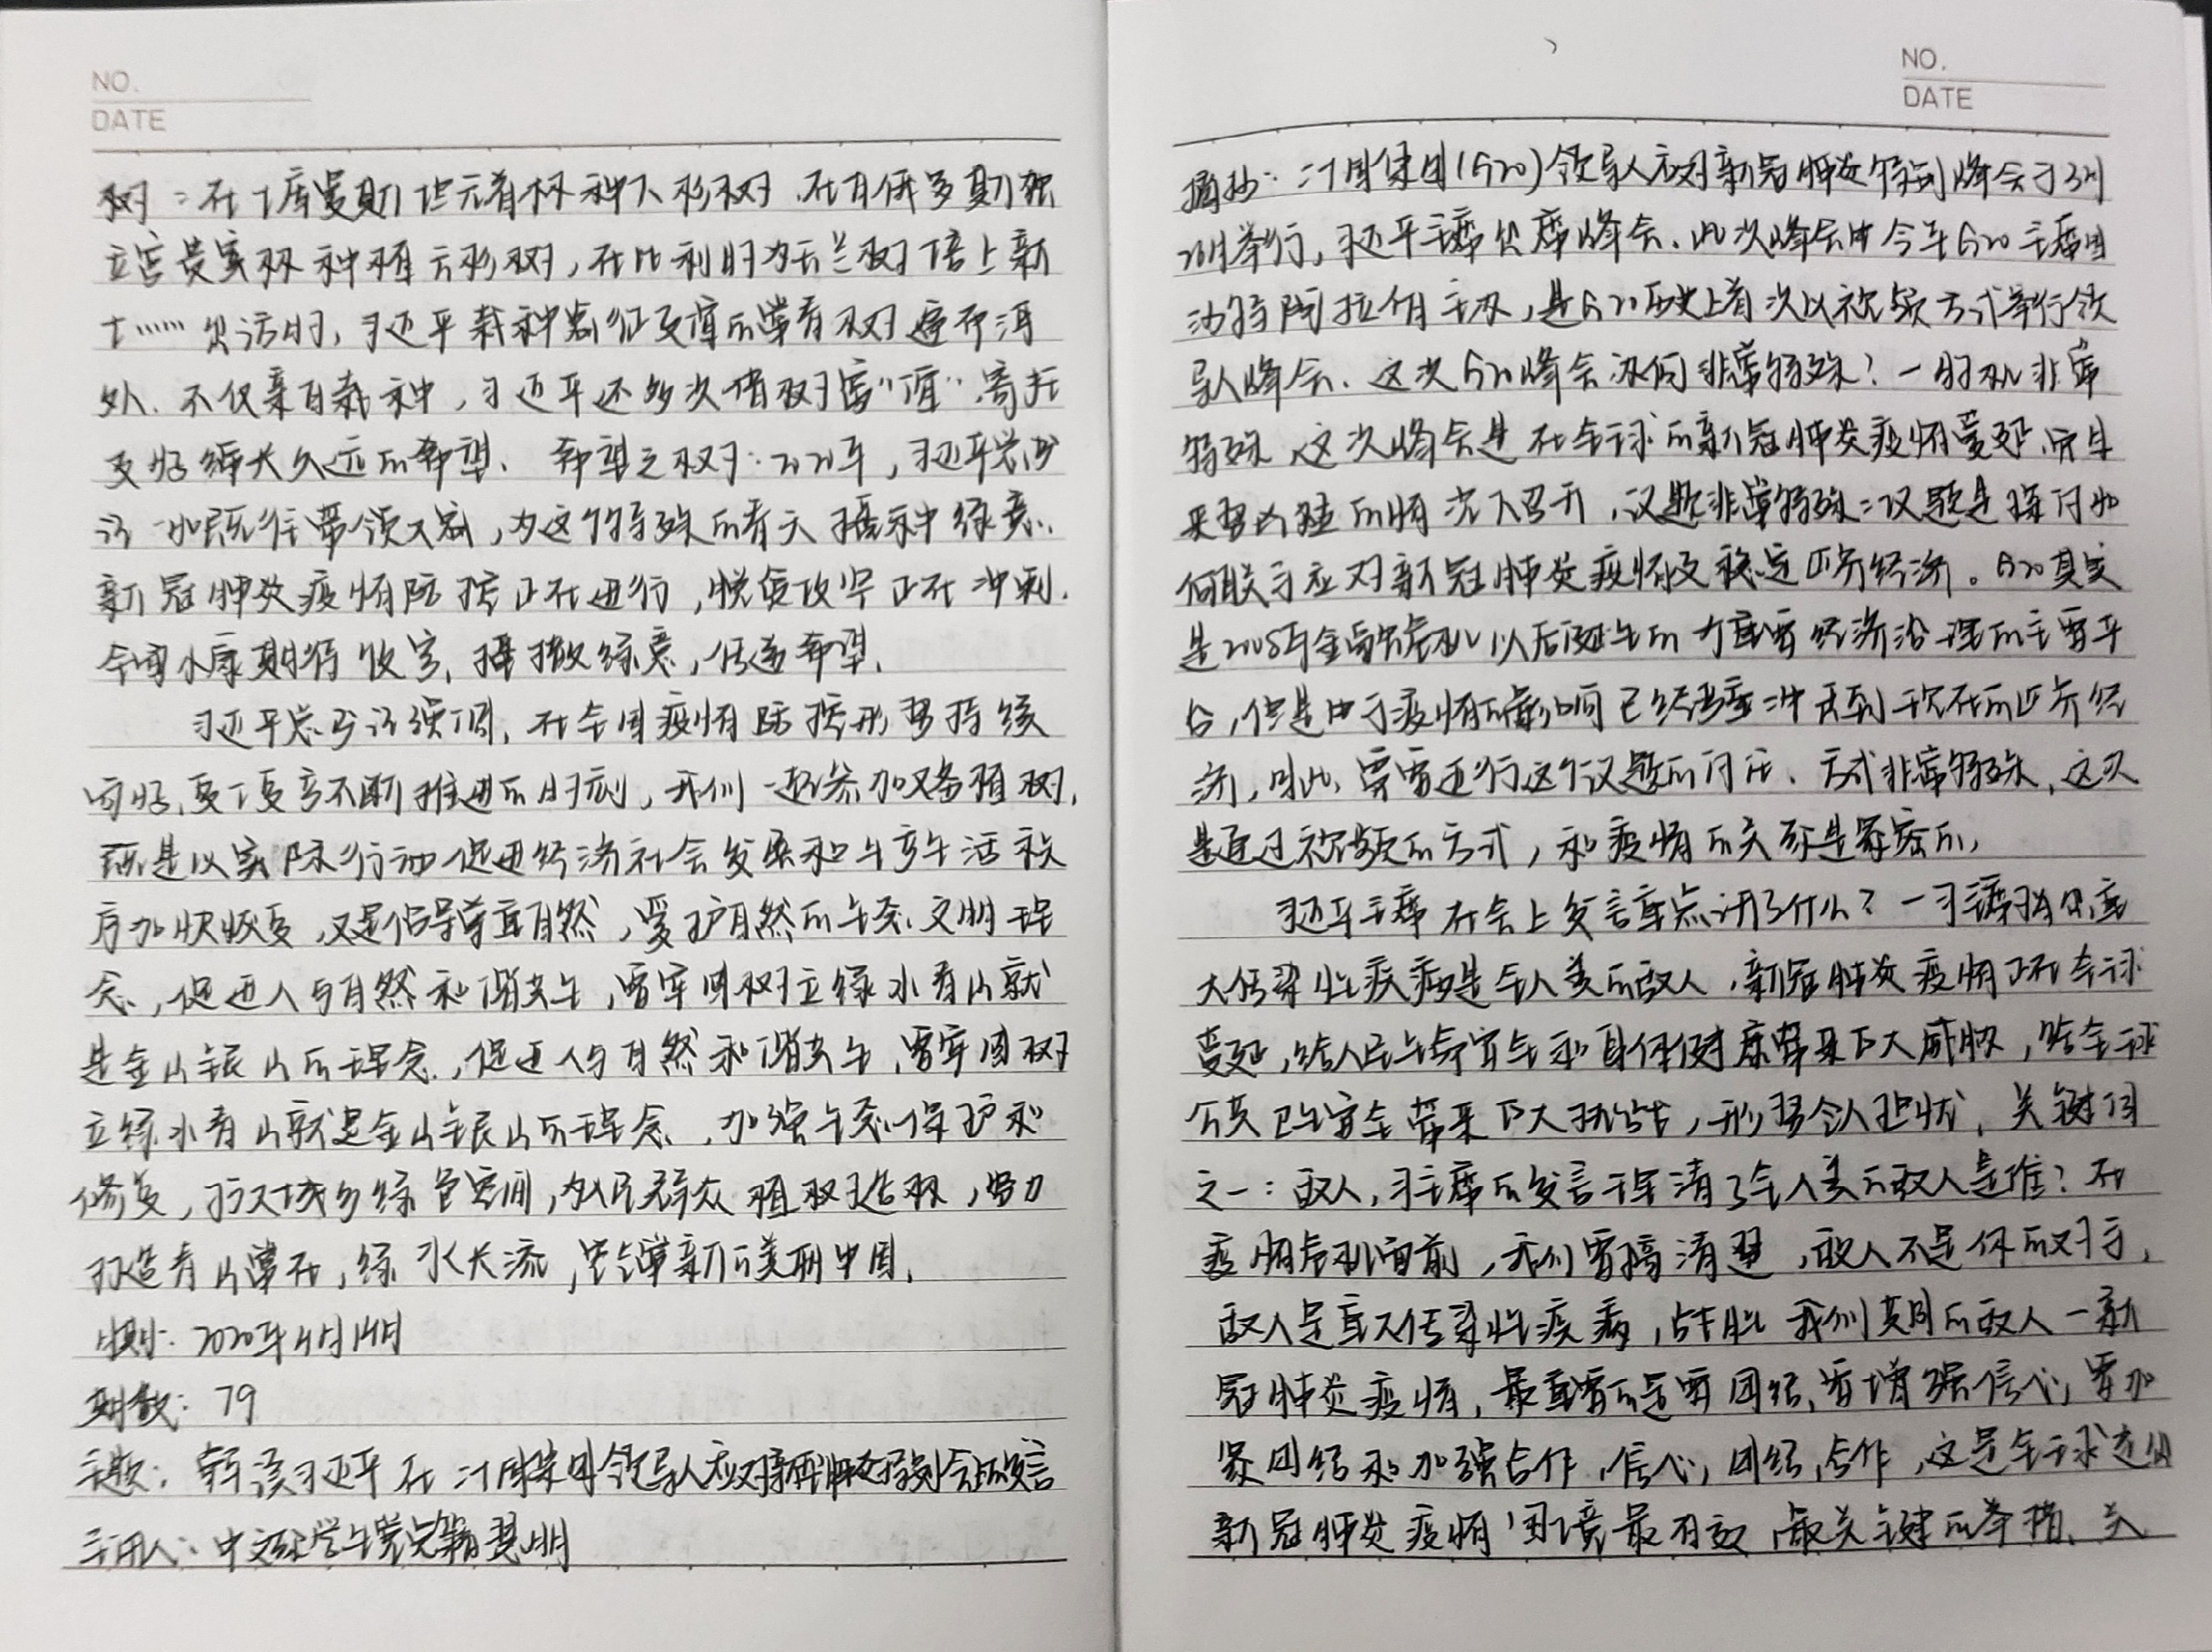 NO.
DATE
树：在土库曼斯坦元首林种下杉树，在厄瓜多尔独
立宫贵宾林种植云杉树，在比利时为玉兰树培上新
土……外访时，习近平栽种象征友谊的常青树遍布海
外．不仅亲自栽种，习近平还多次借树寓"谊"，寄托
友好绵长久远的希望．希望之树：2020年，习近平总书
记一如既往带领大家，为这个特殊的春天播种绿意．
新冠肺炎疫情防控正在进行，脱贫攻坚正在冲刺．
全面小康期待收官，播撒绿意，传递希望．
习近平总书记强调，在全国疫情防控形势持续
向好，复工复产不断推进的时刻，我们一起参加义务植树，
既是以实际行动促进经济社会发展和生产生活秩
序加快恢复，又是倡导尊重自然，爱护自然的生态文明理
念，促进人与自然和谐共生，要牢固树立绿水青山就
是金山银山的理念，促进人与自然和谐共生，要牢固树
立绿水青山就是金山银山的理念，加强生态保护和
修复，扩大城乡绿色空间，为人民群众植树造林，努力
打造青山常在，绿水长流，空气常新的美丽中国．
时间：2020年4月14日
期数：79
主题：解读习近平在二十国集团领导人应对新冠肺炎特别峰会的发言
主讲人：中文
NO.
DATE
摘抄：二十国集团(G20)领导人应对新冠肺炎特别峰会于3月
26日举行，习近平主席出席峰会．此次峰会由今年G20主席国
沙特阿拉伯主办，是G20历史上首次以视频方式举行领
导人峰会．这次G20峰会为何非常特殊？一时机非常
特殊，这次峰会是在全球的新冠肺炎疫情蔓延，
来势凶猛的情况下召开，议题非常特殊：议题是探讨如
何联手应对新冠肺炎疫情及稳定世界经济。G20其实
是2008年金融危机以后诞生的一个重要经济治理的主要平
台，但是由于疫情的影响已经严重冲击到现在的世界经
济，因此，需要进行这个议题的讨论．方式非常特殊，这次
是通过视频的方式，和疫情的关系是紧密的，
习近平主席在会上发言重点讲了什么？一习主席指出，重
大传染性疾病是全人类的敌人，新冠肺炎疫情正在全球
蔓延，给人民生命安全和身体健康带来巨大威胁，给全球
公共卫生安全带来巨大挑战，形势令人担忧．关键词
之一：敌人，习主席的发言理清了全人类的敌人是谁？在
疫情危机面前，我们要搞清楚，敌人不是你的对手，
敌人是重大传染性疾病，战胜我们共同的敌人一新
冠肺炎疫情，最重要的是要团结，要增强信心，要加
紧团结和加强合作，信心，团结，合作，这是全球走出
新冠肺炎疫情困境最有效，最关键的举措．关